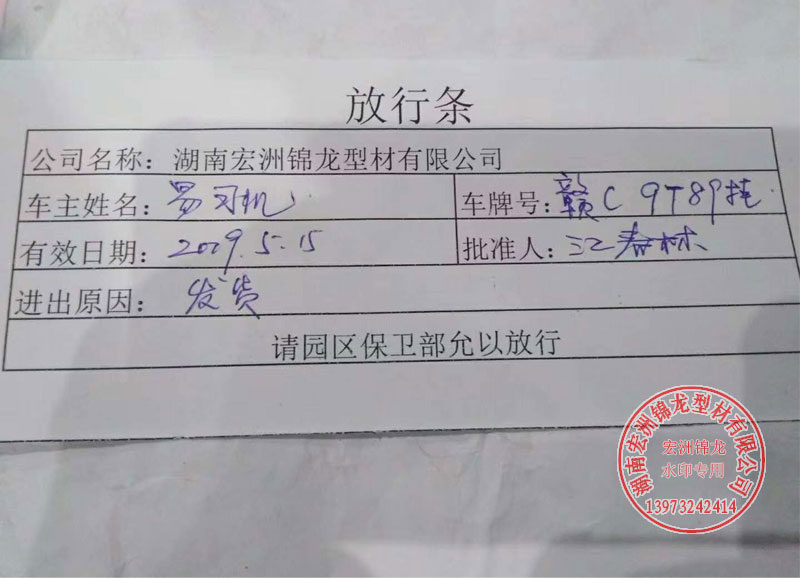 放行条
公司名称：湖南宏洲锦龙型材有限公司
车主姓名：易司机 车牌号：赣C 9T89挂
有效日期：2019.5.15 批准人：江春林
进出原因：发货
请园区保卫部允以放行
湖南宏洲锦龙型材有限公司
宏洲锦龙
水印专用
13973242414